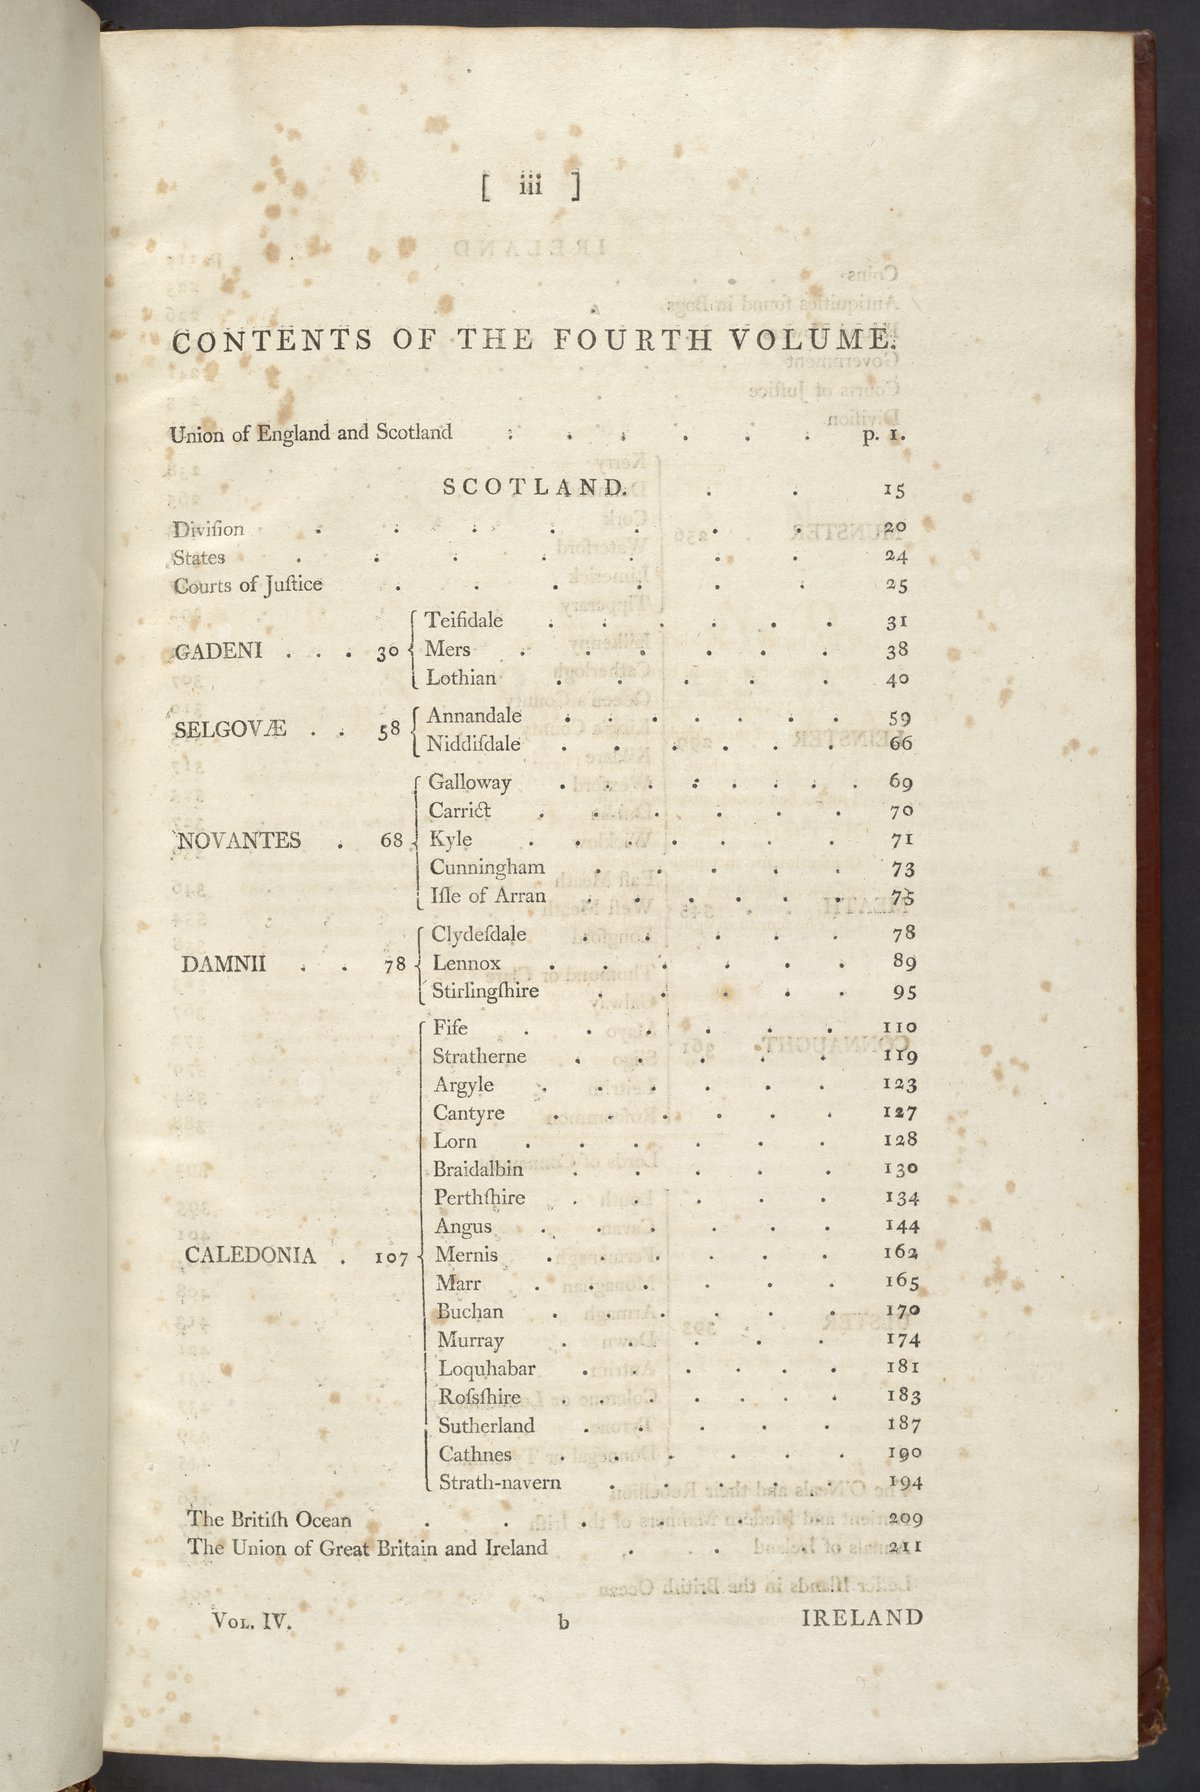 [ iii ]
CONTENTS OF THE FOURTH VOLUME.
Union of England and Scotland . . . . . . p. 1.
SCOTLAND. . . 15
Diviſion . . . . . . . 20
States . . . . . . . 24
Courts of Juſtice . . . . . . 25
Teiſidale . . . . . . 31
GADENI . . . 30 Mers . . . . . . 38
Lothian . . . . . 40
Annandale . . . . . . . 59
SELGOVÆ . . 58
Niddiſdale . . . . . . 66
Galloway . . . . . . . . 69
Carrict . . . . . . 70
NOVANTES . 68 Kyle . . . . . . . 71
Cunningham . . . . . 73
Iſle of Arran . . . . . . 75
Clydeſdale . . . . . 78
DAMNII . . 78 Lennox . . . . . . 89
Stirlingſhire . . . . . 95
Fife . . . . . . 110
Stratherne . . . . . 119
Argyle . . . . . . 123
Cantyre . . . . . . 127
Lorn . . . . . . 128
Braidalbin . . . . . 130
Perthſhire . . . . . 134
Angus . . . . . . 144
CALEDONIA . 107 Mernis . . . . . . 162
Marr . . . . . . 165
Buchan . . . . . . 170
Murray . . . . . 174
Loquhabar . . . . . . 181
Roſsſhire . . . . . . 183
Sutherland . . . . . 187
Cathnes . . . . . . 190
Strath-navern . . . . . 194
The Britiſh Ocean . . . . . . 209
The Union of Great Britain and Ireland . . . 211
VOL. IV. b IRELAND